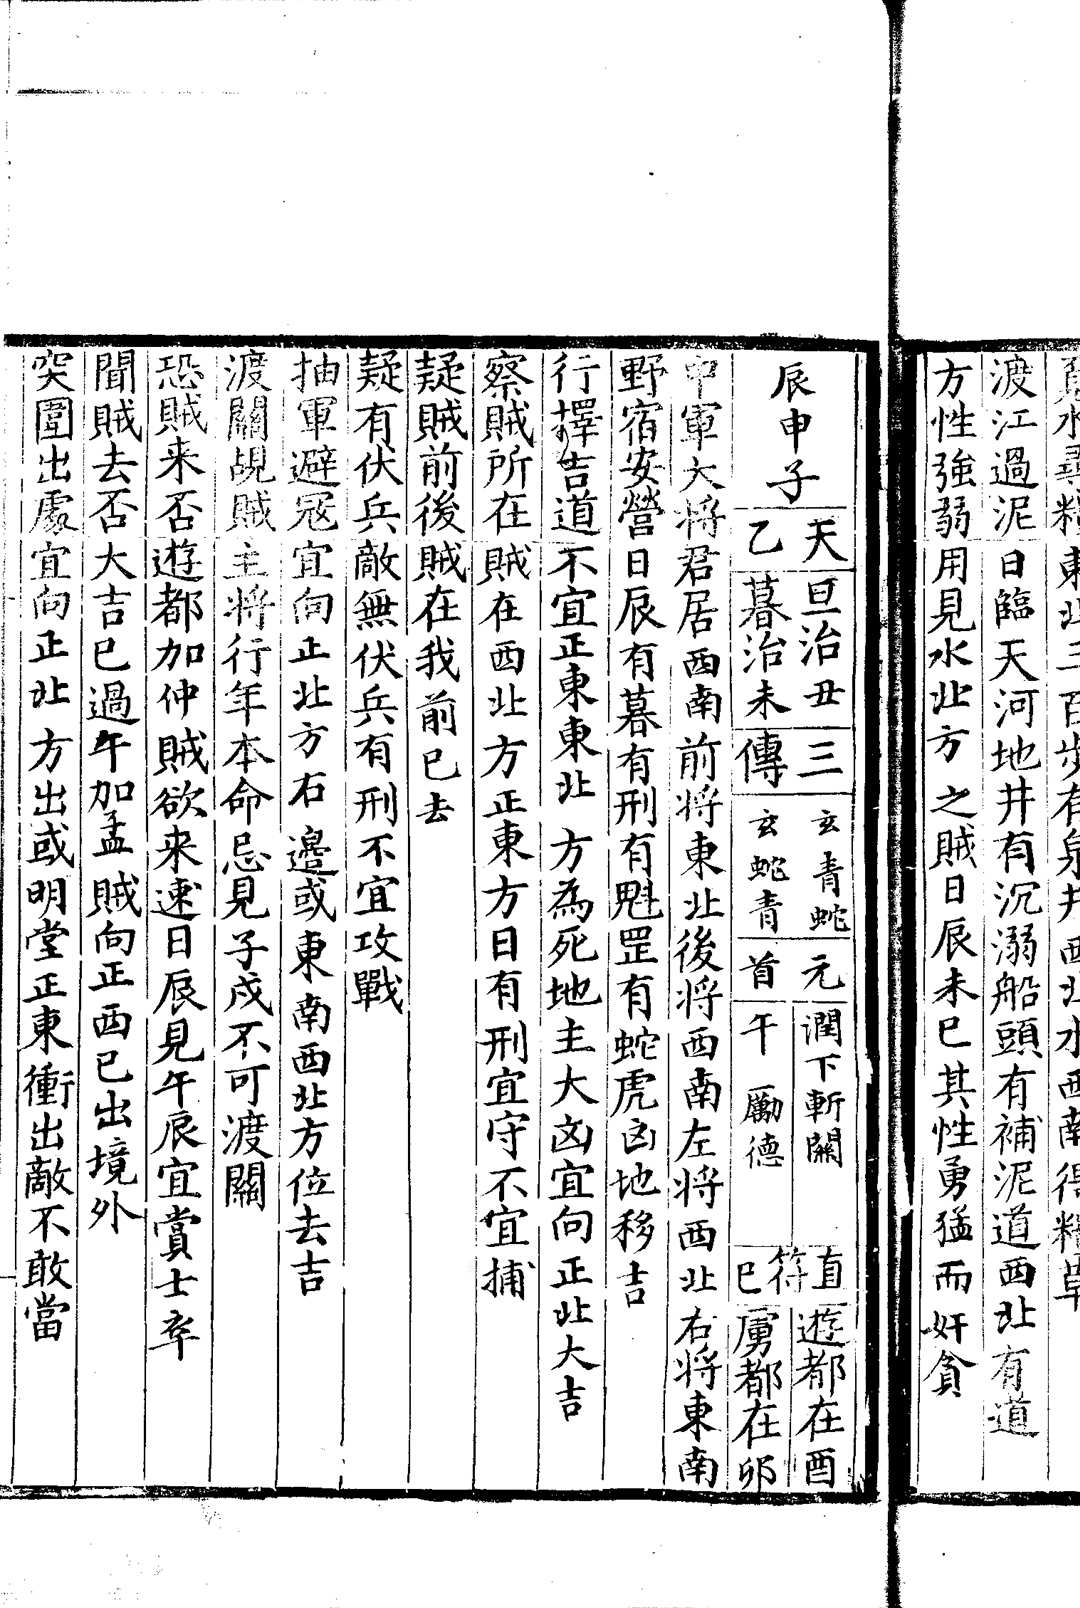 覓水尋糧東北三百步有泉井西北水西南得糧草
渡江過泥日臨天河地井有沉溺船頭有補泥道西北有道
方性強弱用見水北方之賊日辰未巳其性勇猛而奸貪
辰申子
天乙
旦治丑
暮治未
三傳
玄青蛇
玄蛇青
元首
潤下斬關
午勵德
直符巳
遊都在酉
虜都在卯
中軍大将君居西南前将東北後将西南左将西北右将東南
野宿安營日辰有暮有刑有魁罡有蛇虎凶地移吉
行擇吉道不宜正東東北方為死地主大凶宜向正北大吉
察賊所在賊在西北方正東方日有刑宜守不宜捕
疑賊前後賊在我前已去
疑有伏兵敵無伏兵有刑不宜攻戰
抽軍避冦宜向正北方右邉或東南西北方位去吉
渡關覘賊主将行年本命忌見子戌不可渡關
恐賊来否遊都加仲賊欲来速日辰見午辰宜賞士卒
聞賊去否大吉已過午加孟賊向正西已出境外
突圍出處宜向正北方出或明堂正東衝出敵不敢當